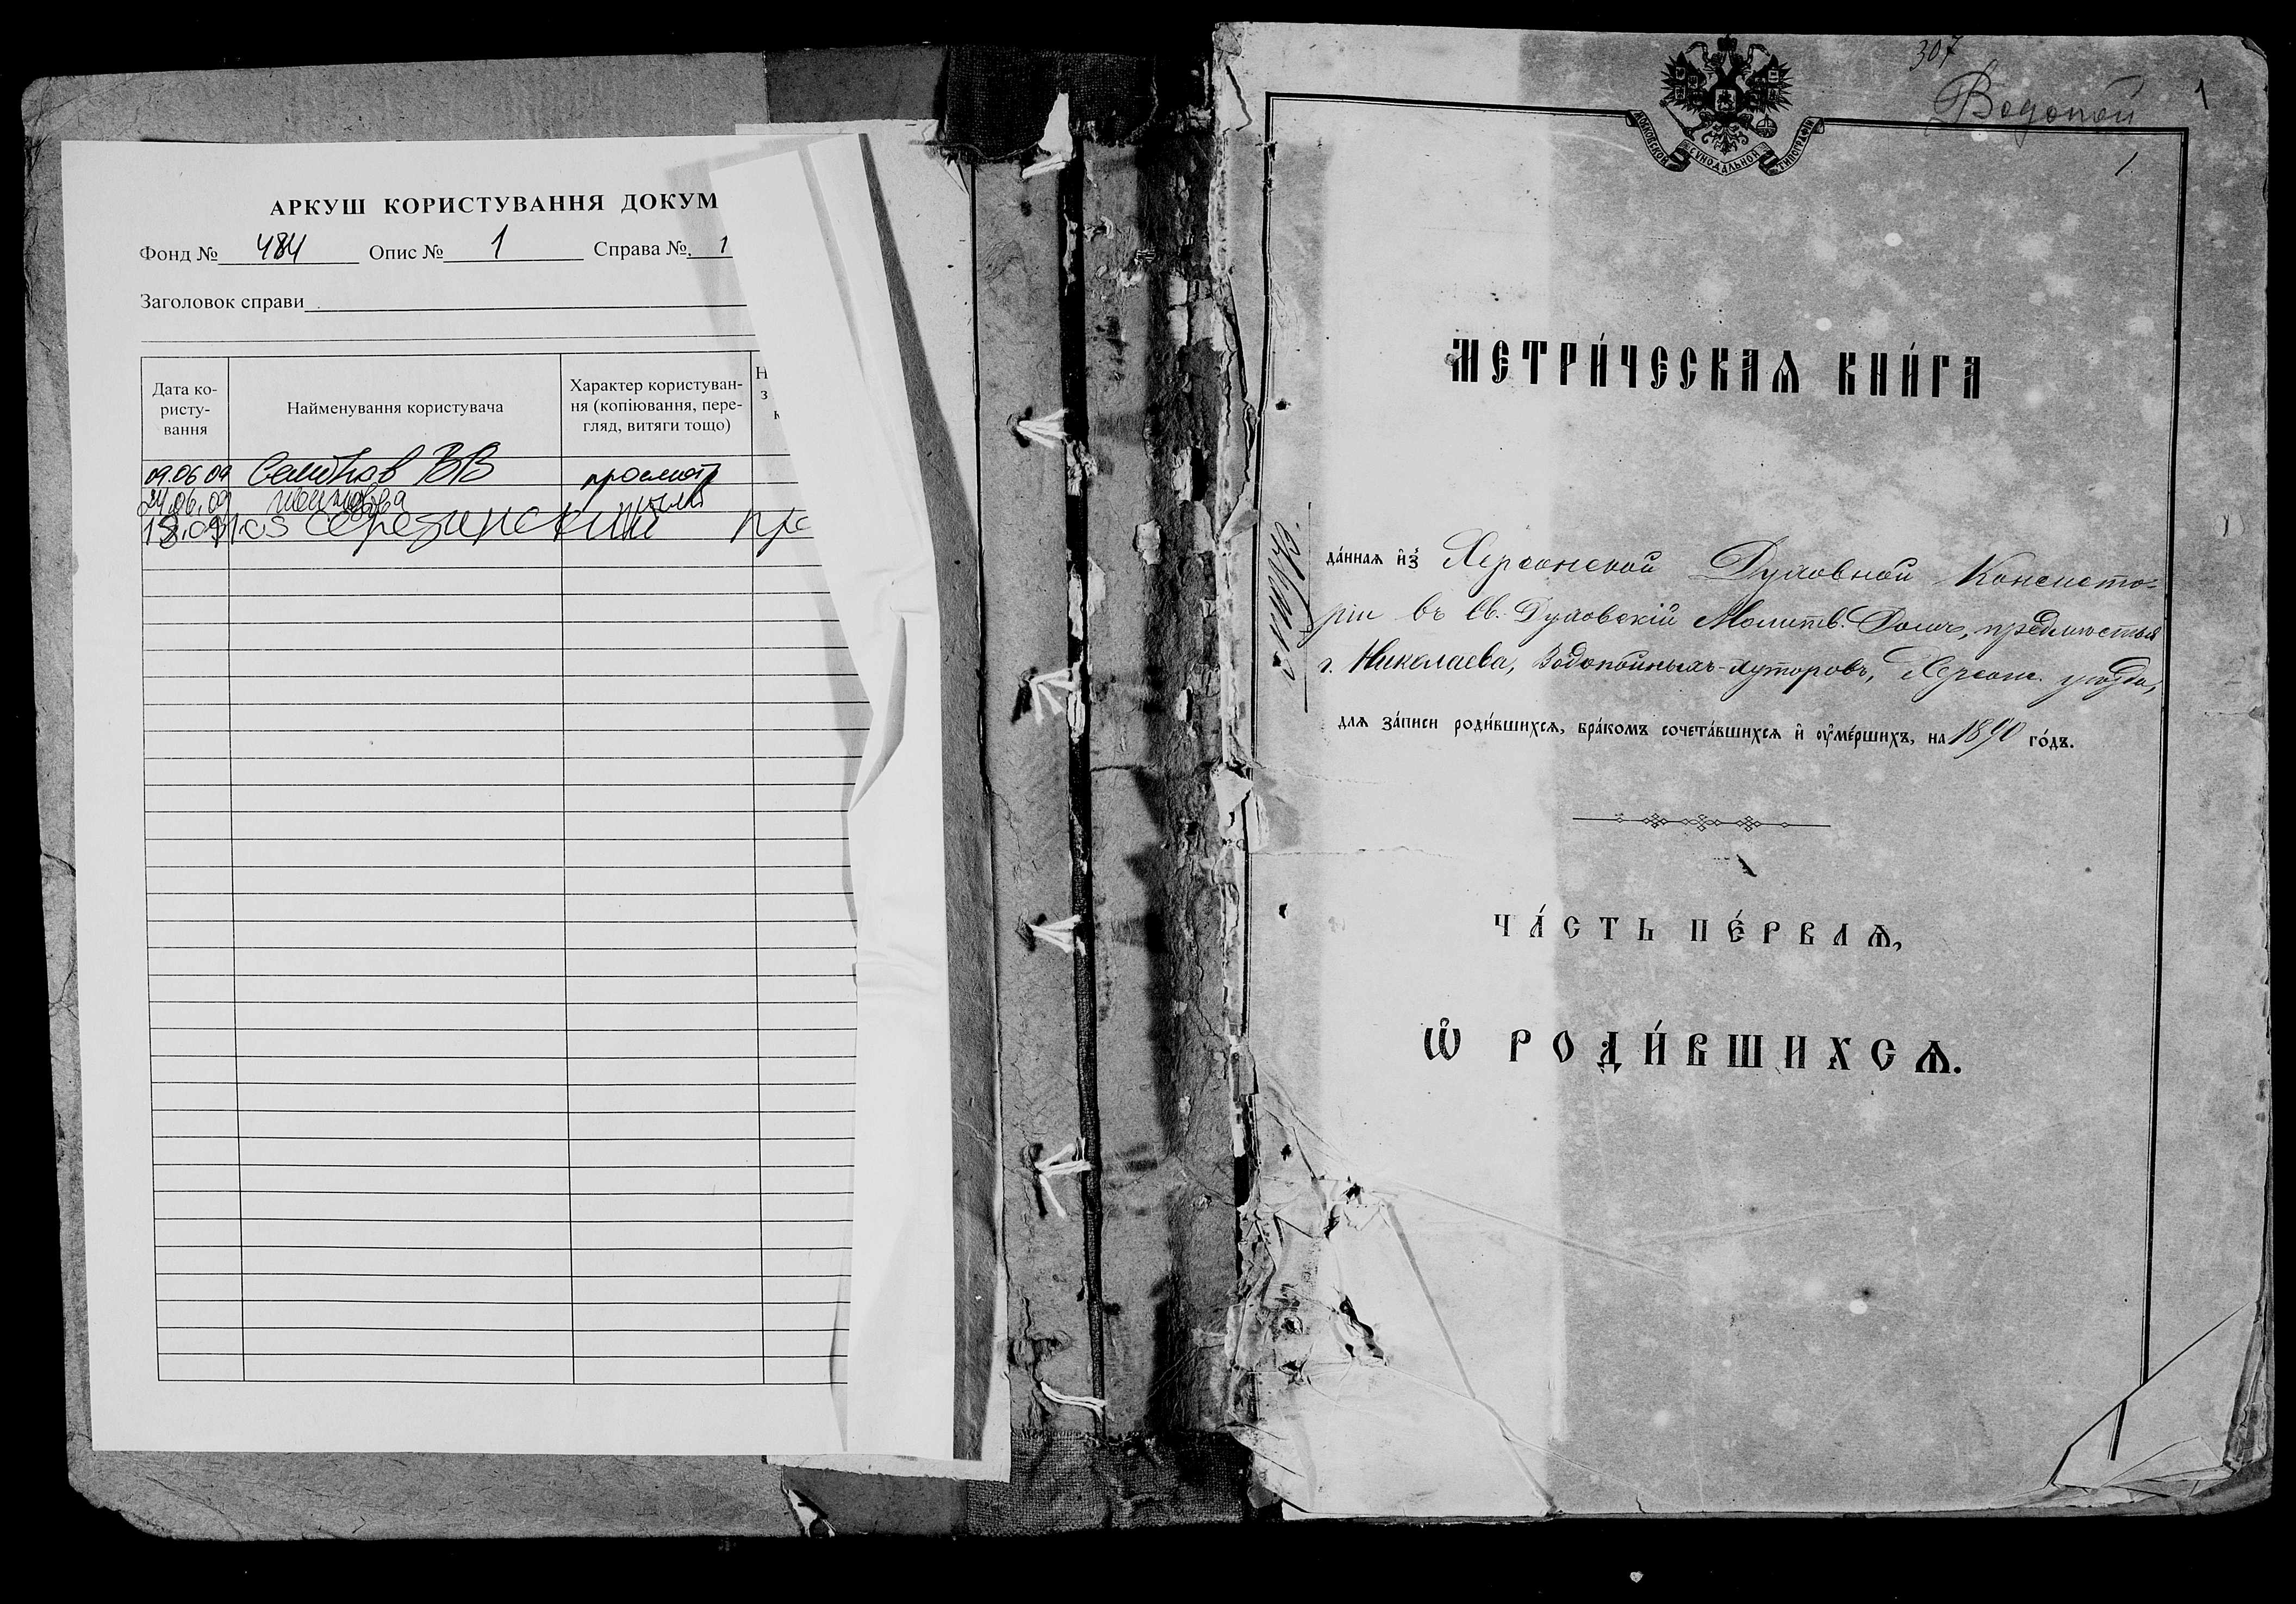 АРКУШ КОРИСТУВАННЯ ДОКУМ
Фонд № 484 Опис № 1 Справа № 1
Заголовок справи
Дата ко-
ристу-
вання
Найменування користувача
Характер користуван-
ня (копіювання, пере-
гляд, витяги тощо)
Н
з
к
09.06 09 ВВ просмотр
24.06.09
Середински пр
307
Водопой 1
1
МОСКОВСКОЙ СѴНОДАЛЬНОЙ ТИПОГРАФІИ
МЕТРИ́ЧЕСКАѦ КНИ́ГА
да́ннаѧ и҆з̾ Херсонской Духовной Консисто-
ріи въ Св. Духовскій Молитв. Домъ, предмѣстья
г. Николаева, Водопойныхъ-хуторовъ, Херсон. уѣзда,
длѧ за́писи роди́вшихсѧ, бра́комъ сочета́вшихсѧ и҆ оу҆ме́ршихъ, на 1890 го́дъ.
ЧА́СТЬ ПЕ́РВАѦ,
Ѽ РОДИ́ВШИХСѦ.